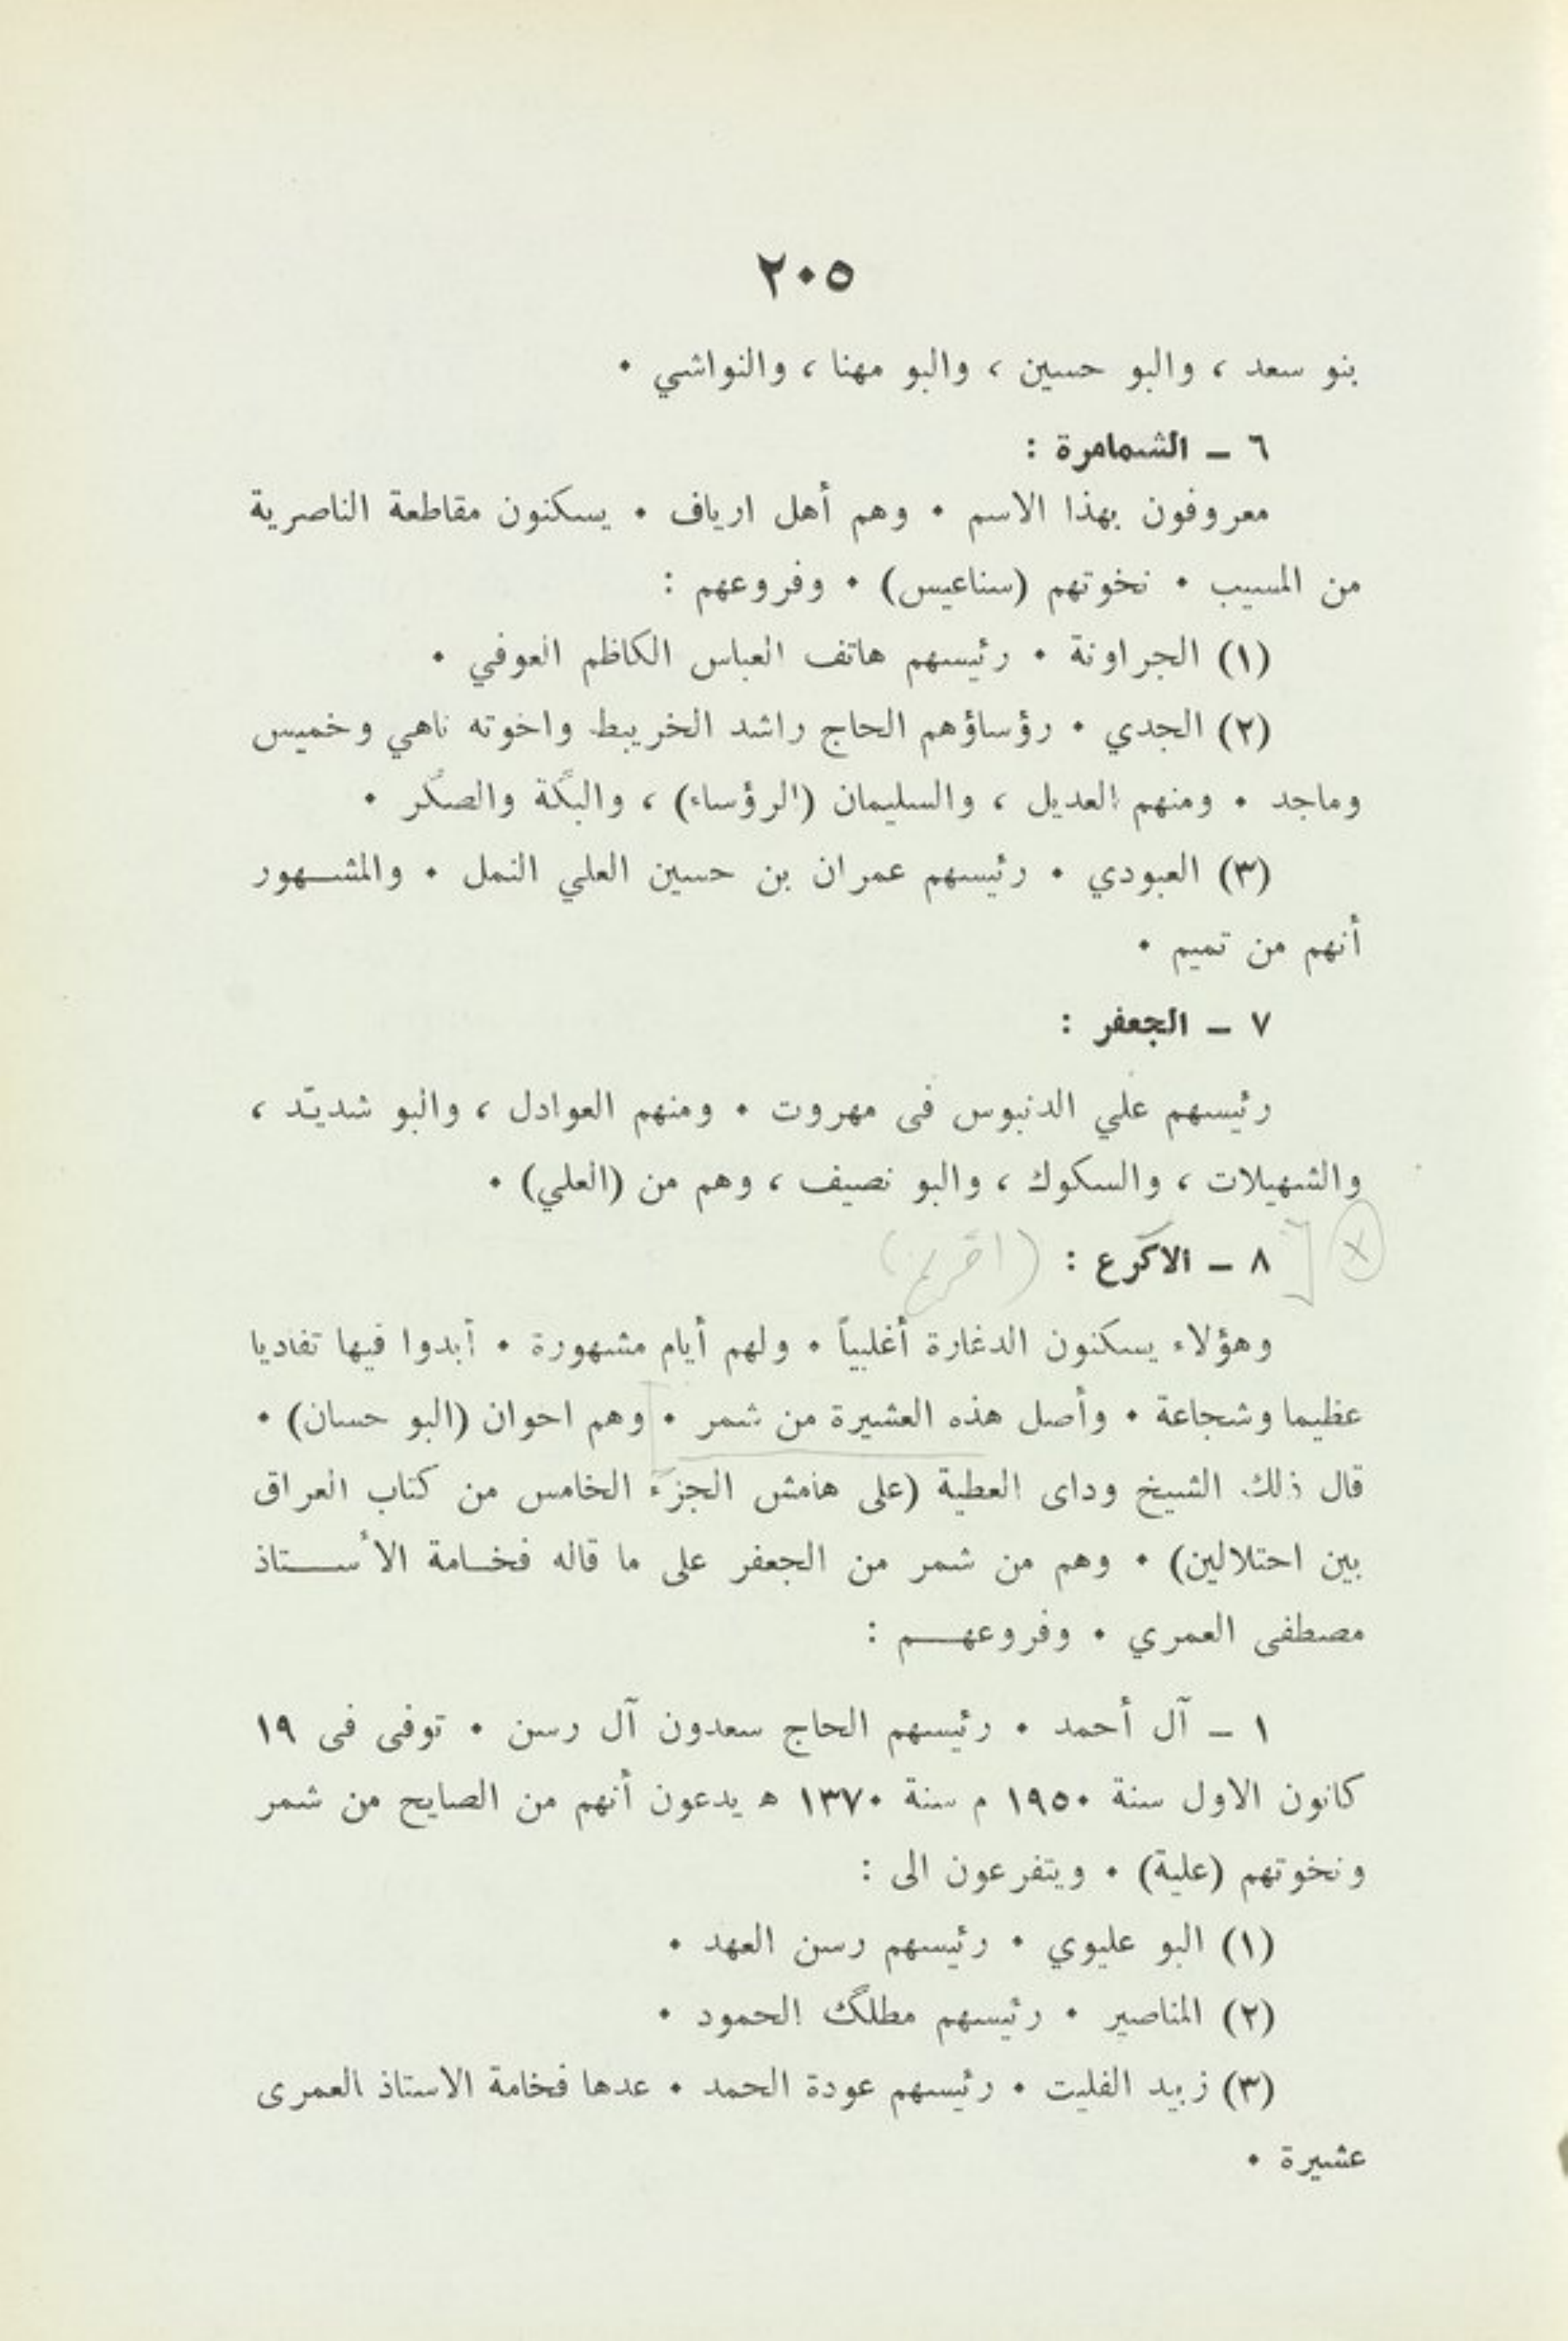 ٢٠٥
بنو سعد ، والبو حسين ، والبو مهنا ، والنواشي ٠
٦ ــ الشمامرة :
معروفون بهذا الاسم ٠ وهم أهل ارياف ٠ يسكنون مقاطعة الناصرية
من المسيب ٠ نخوتهم (سناعيس) ٠ وفروعهم :
(١) الجراونة ٠ رئيسهم هاتف العباس الكاظم العوفي ٠
(٢) الجدي ٠ رؤساؤهم الحاج راشد الخريبط واخوته ناهي وخميس
وماجد ٠ ومنهم العديل ، والسليمان (الرؤساء) ، والبگة والصگر ٠
(٣) العبودي ٠ رئيسهم عمران بن حسين العلي النمل ٠ والمشهور
أنهم من تميم ٠
٧ ــ الجعفر :
رئيسهم علي الدنبوس فى مهروت ٠ ومنهم العوادل ، والبو شديّد ،
والشهيلات ، والسكوك ، والبو نصيف ، وهم من (العلي) ٠
٨ ــ الاكرع : (اقرع)
وهؤلاء يسكنون الدغارة أغلبياً ٠ ولهم أيام مشهورة ٠ أبدوا فيها تفاديا
عظيما وشجاعة ٠ وأصل هذه العشيرة من شمر ٠ وهم اخوان (البو حسان) ٠
قال ذلك الشيخ وداى العطية (على هامش الجزء الخامس من كتاب العراق
بين احتلالين) ٠ وهم من شمر من الجعفر على ما قاله فخامة الأستاذ
مصطفى العمري ٠ وفروعهم :
١ ــ آل أحمد ٠ رئيسهم الحاج سعدون آل رسن ٠ توفى فى ١٩
كانون الاول سنة ١٩٥٠ م سنة ١٣٧٠ ه يدعون أنهم من الصايح من شمر
ونخوتهم (علية) ٠ ويتفرعون الى :
(١) البو عليوي ٠ رئيسهم رسن العهد ٠
(٢) المناصير ٠ رئيسهم مطلگ الحمود ٠
(٣) زبيد الفليت ٠ رئيسهم عودة الحمد ٠ عدها فخامة الاستاذ العمرى
عشيرة ٠